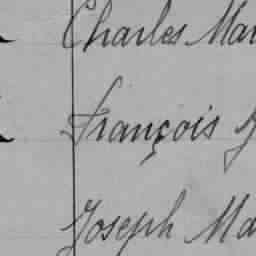 Charles Mar
François
Joseph Ma